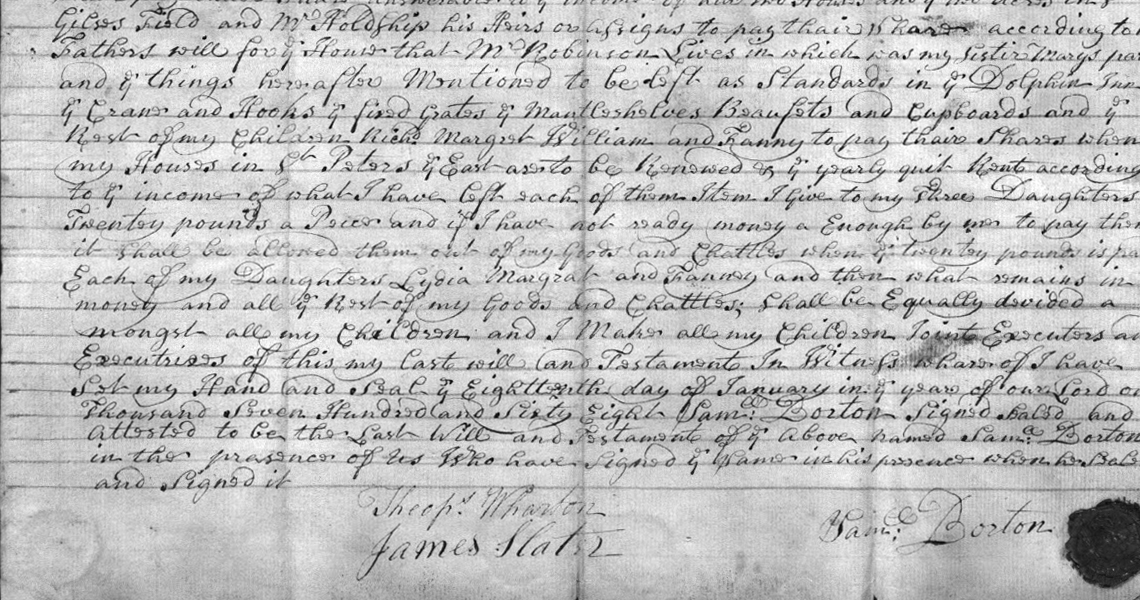 Gilses Field and Mr Holdship his Heirs or Assigns to pay thair Share according to
Fathers will for ye House that Mr Robinson Lives in which was my Sistir Marys par
and ye things hereafter Mentioned to be Left as Standards in ye Dolphin Inn
ye Crane and Hooks ye fixed Grates ye Mantleshelves Beaufets and Cupboards and ye
Rest of my Children Richd Margret William and Fanny to pay thair Shares when
my Houses in St Peters ye East are to be Renewed & ye yearly quit Rent according
to ye income of what I have Left each of them Item I Give to my three Daughters
Twenty pounds a Peece and if I have not ready money a Enough by me to pay them
it shall be allowed them out of my Goods and Chattles when ye twenty pounds is pa
Each of my Daughters Lydia Margrat and Fanney and then what remains in
money and all ye Rest of my Goods and Chattles; shall be Equally devided a
mongst all my Children and I Make all my Children Joint Executers an
Executrixes of this my Last will and Testament In Witness whareof I have
Set my Hand and Seal ye Eightteenth day of January in ye year of our Lord on
Thousand Seven Hundred and Sixty Eight Saml: Borton Signed Saled and
Attested to be the Last Will and Testament of ye Above named Saml: Borton
in the presence of Us Who have Signed ye Same in his presence when he Sale
and Signed it
Theops Wharton
James Slater
Saml: Borton